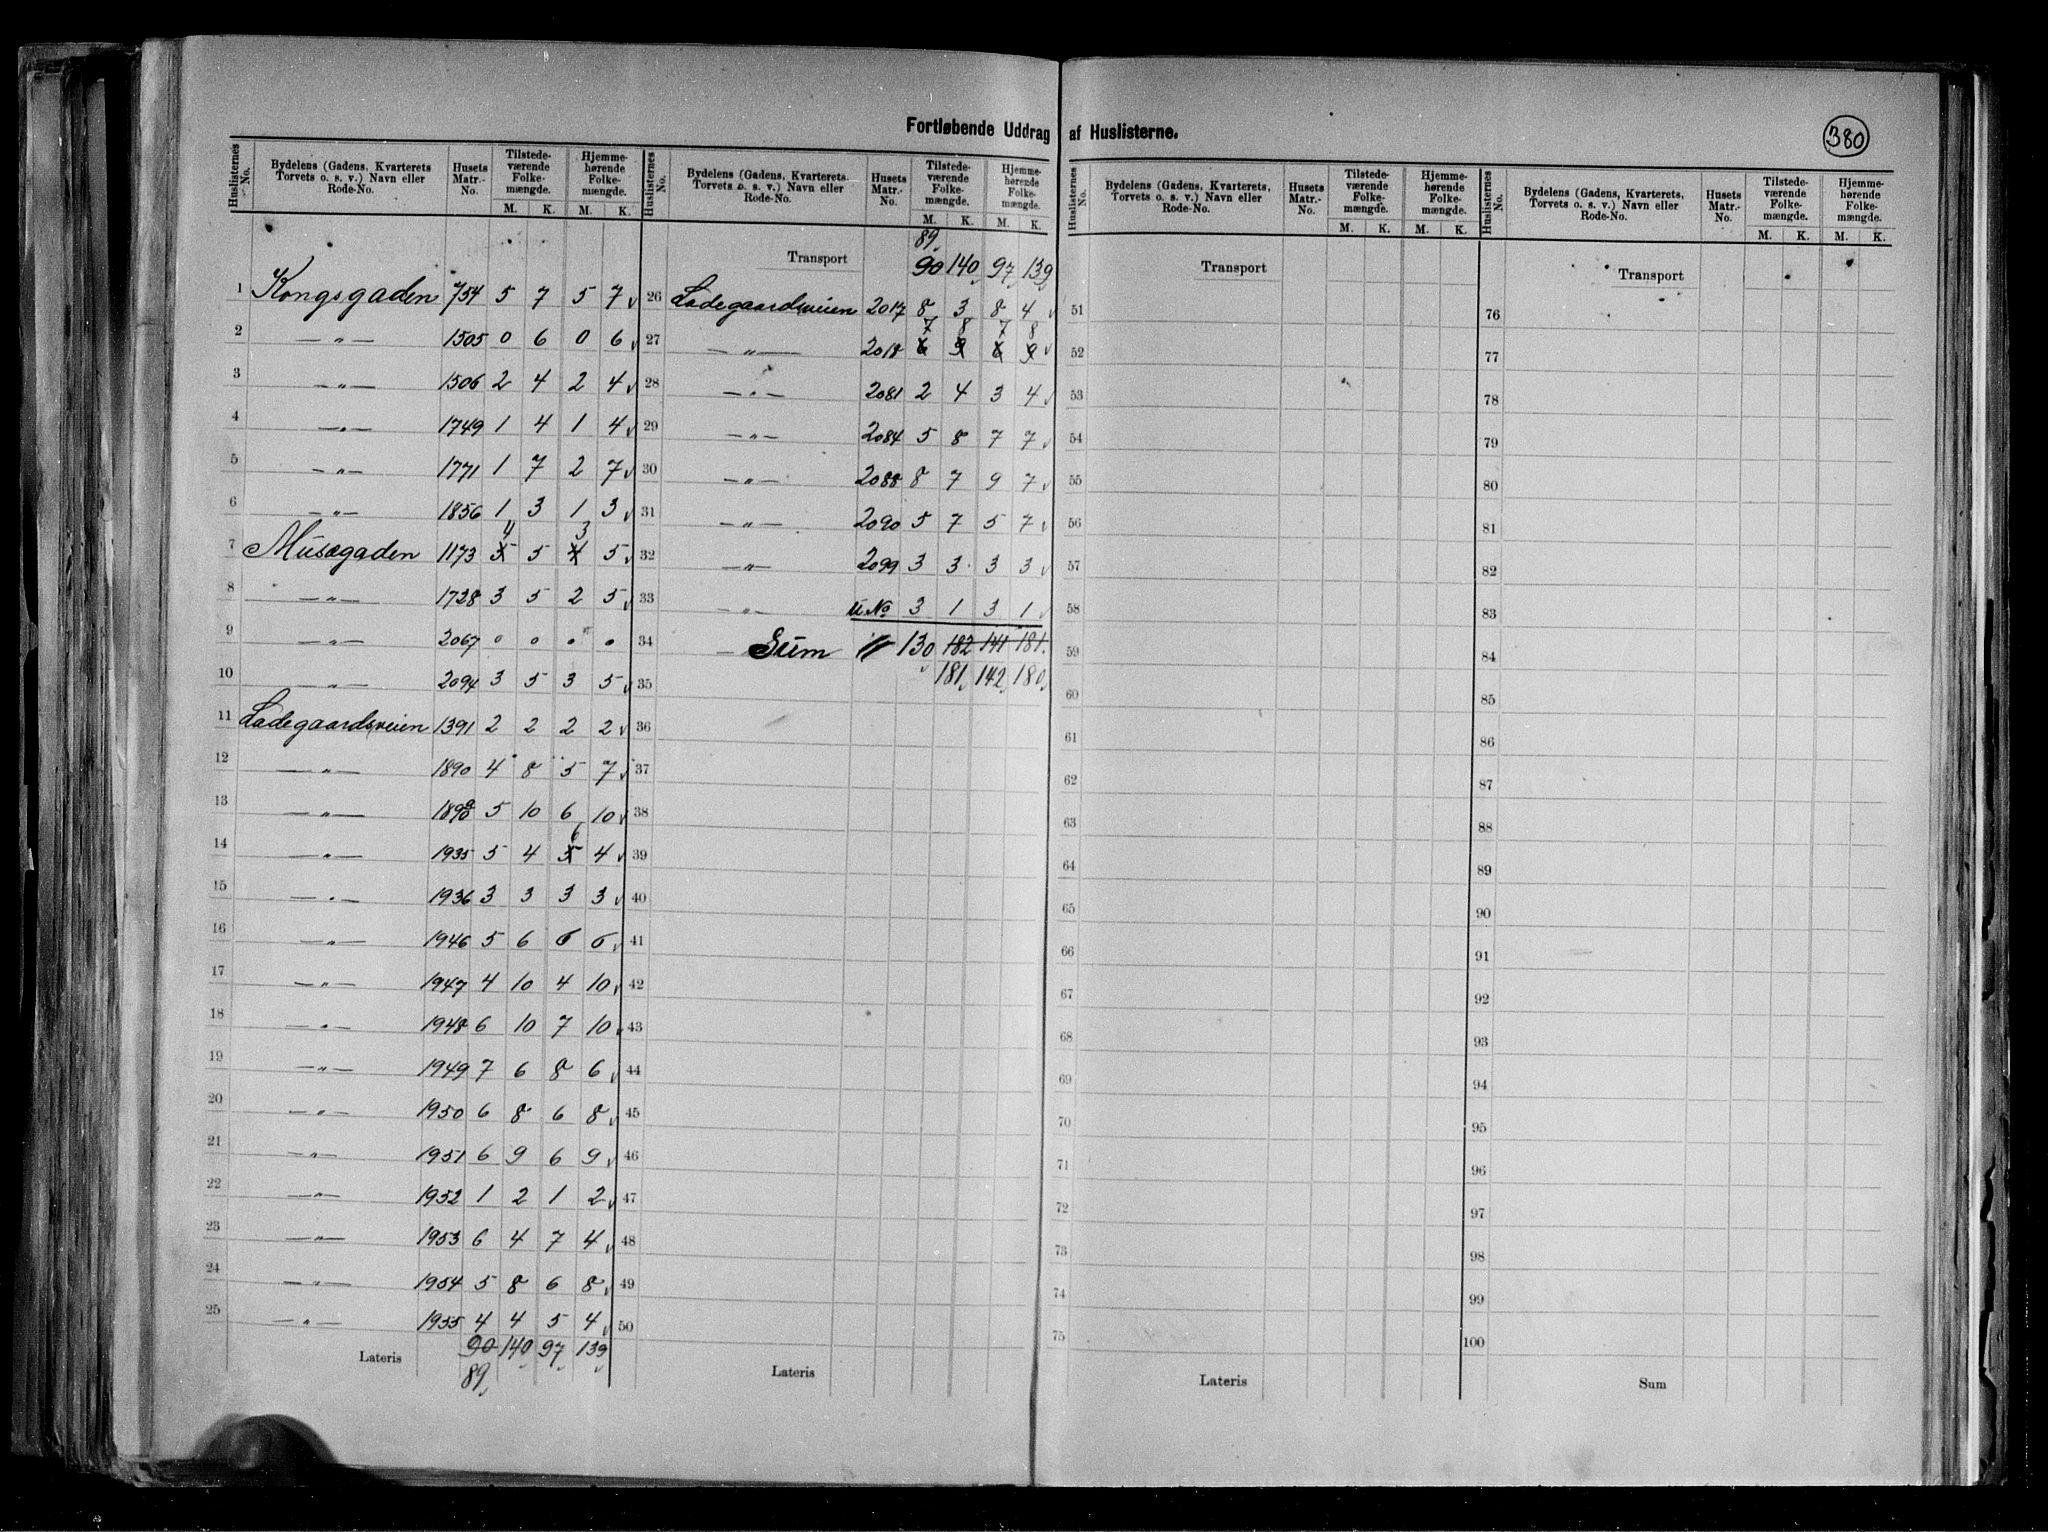 Fortløbende Uddrag af Huslisterne.
380
Huslisternes No. Bydelens (Gadens, Kvarterets Torvets o. s. v.) Navn eller Rode-No. Husets Matr.-No. Tilstedeværende Folkemængde. M. K. Hjemmehørende Folkemængde. M. K.
1 Kongsgaden 754 5 7 5 7
2 —„— 1505 0 6 0 6
3 —„— 1506 2 4 2 4
4 —„— 1749 1 4 1 4
5 —„— 1771 1 7 2 7
6 —„— 1856 1 3 1 3
4 3
7 Musægaden 1173 5 5 4 5
8 —„— 1728 3 5 2 5
9 —„— 2067 0 0 0 0
10 —„— 2094 3 5 3 5
11 Ladegaardsveien 1391 2 2 2 2
12 —„— 1890 4 8 5 7
13 —„— 1890a 5 10 6 10
6
14 —„— 1935 5 4 5 4
15 —„— 1936 3 3 3 3
16 —„— 1946 5 6 6 6
17 —„— 1947 4 10 4 10
18 —„— 1948 6 10 7 10
19 —„— 1949 7 6 8 6
20 —„— 1950 6 8 6 8
21 —„— 1951 6 9 6 9
22 —„— 1952 1 2 1 2
23 —„— 1953 6 4 7 4
24 —„— 1954 5 8 6 8
25 —„— 1955 4 4 5 4
Lateris 90 140 97 139
89
Huslisternes No. Bydelens (Gadens, Kvarterets Torvets o. s. v.) Navn eller Rode-No. Husets Matr.-No. Tilstedeværende Folkemængde. M. K. Hjemmehørende Folkemængde. M. K.
89
Transport 90 140 97 139
26 Ladegaardsveien 2017 8 3 8 4
7 8 7 8
27 —„— 2018 6 9 6 9
28 —„— 2081 2 4 3 4
29 —„— 2084 5 8 7 7
30 —„— 2088 8 7 9 7
31 —„— 2090 5 7 5 7
32 —„— 2099 3 3 3 3
33 —„— u. No 3 1 3 1
34 Sum 130 182 141 181
35 181 142 180
36
37
38
39
40
41
42
43
44
45
46
47
48
49
50
Lateris
Huslisternes No. Bydelens (Gadens, Kvarterets, Torvets o. s. v.) Navn eller Rode-No. Husets Matr.-No. Tilstedeværende Folkemængde. M. K. Hjemmehørende Folkemængde. M. K.
Transport
51
52
53
54
55
56
57
58
59
60
61
62
63
64
65
66
67
68
69
70
71
72
73
74
75
Lateris
Huslisternes No. Bydelens (Gadens, Kvarterets, Torvets o. s. v.) Navn eller Rode-No. Husets Matr.-No. Tilstedeværende Folkemængde. M. K. Hjemmehørende Folkemængde. M. K.
Transport
76
77
78
79
80
81
82
83
84
85
86
87
88
89
90
91
92
93
94
95
96
97
98
99
100
Sum